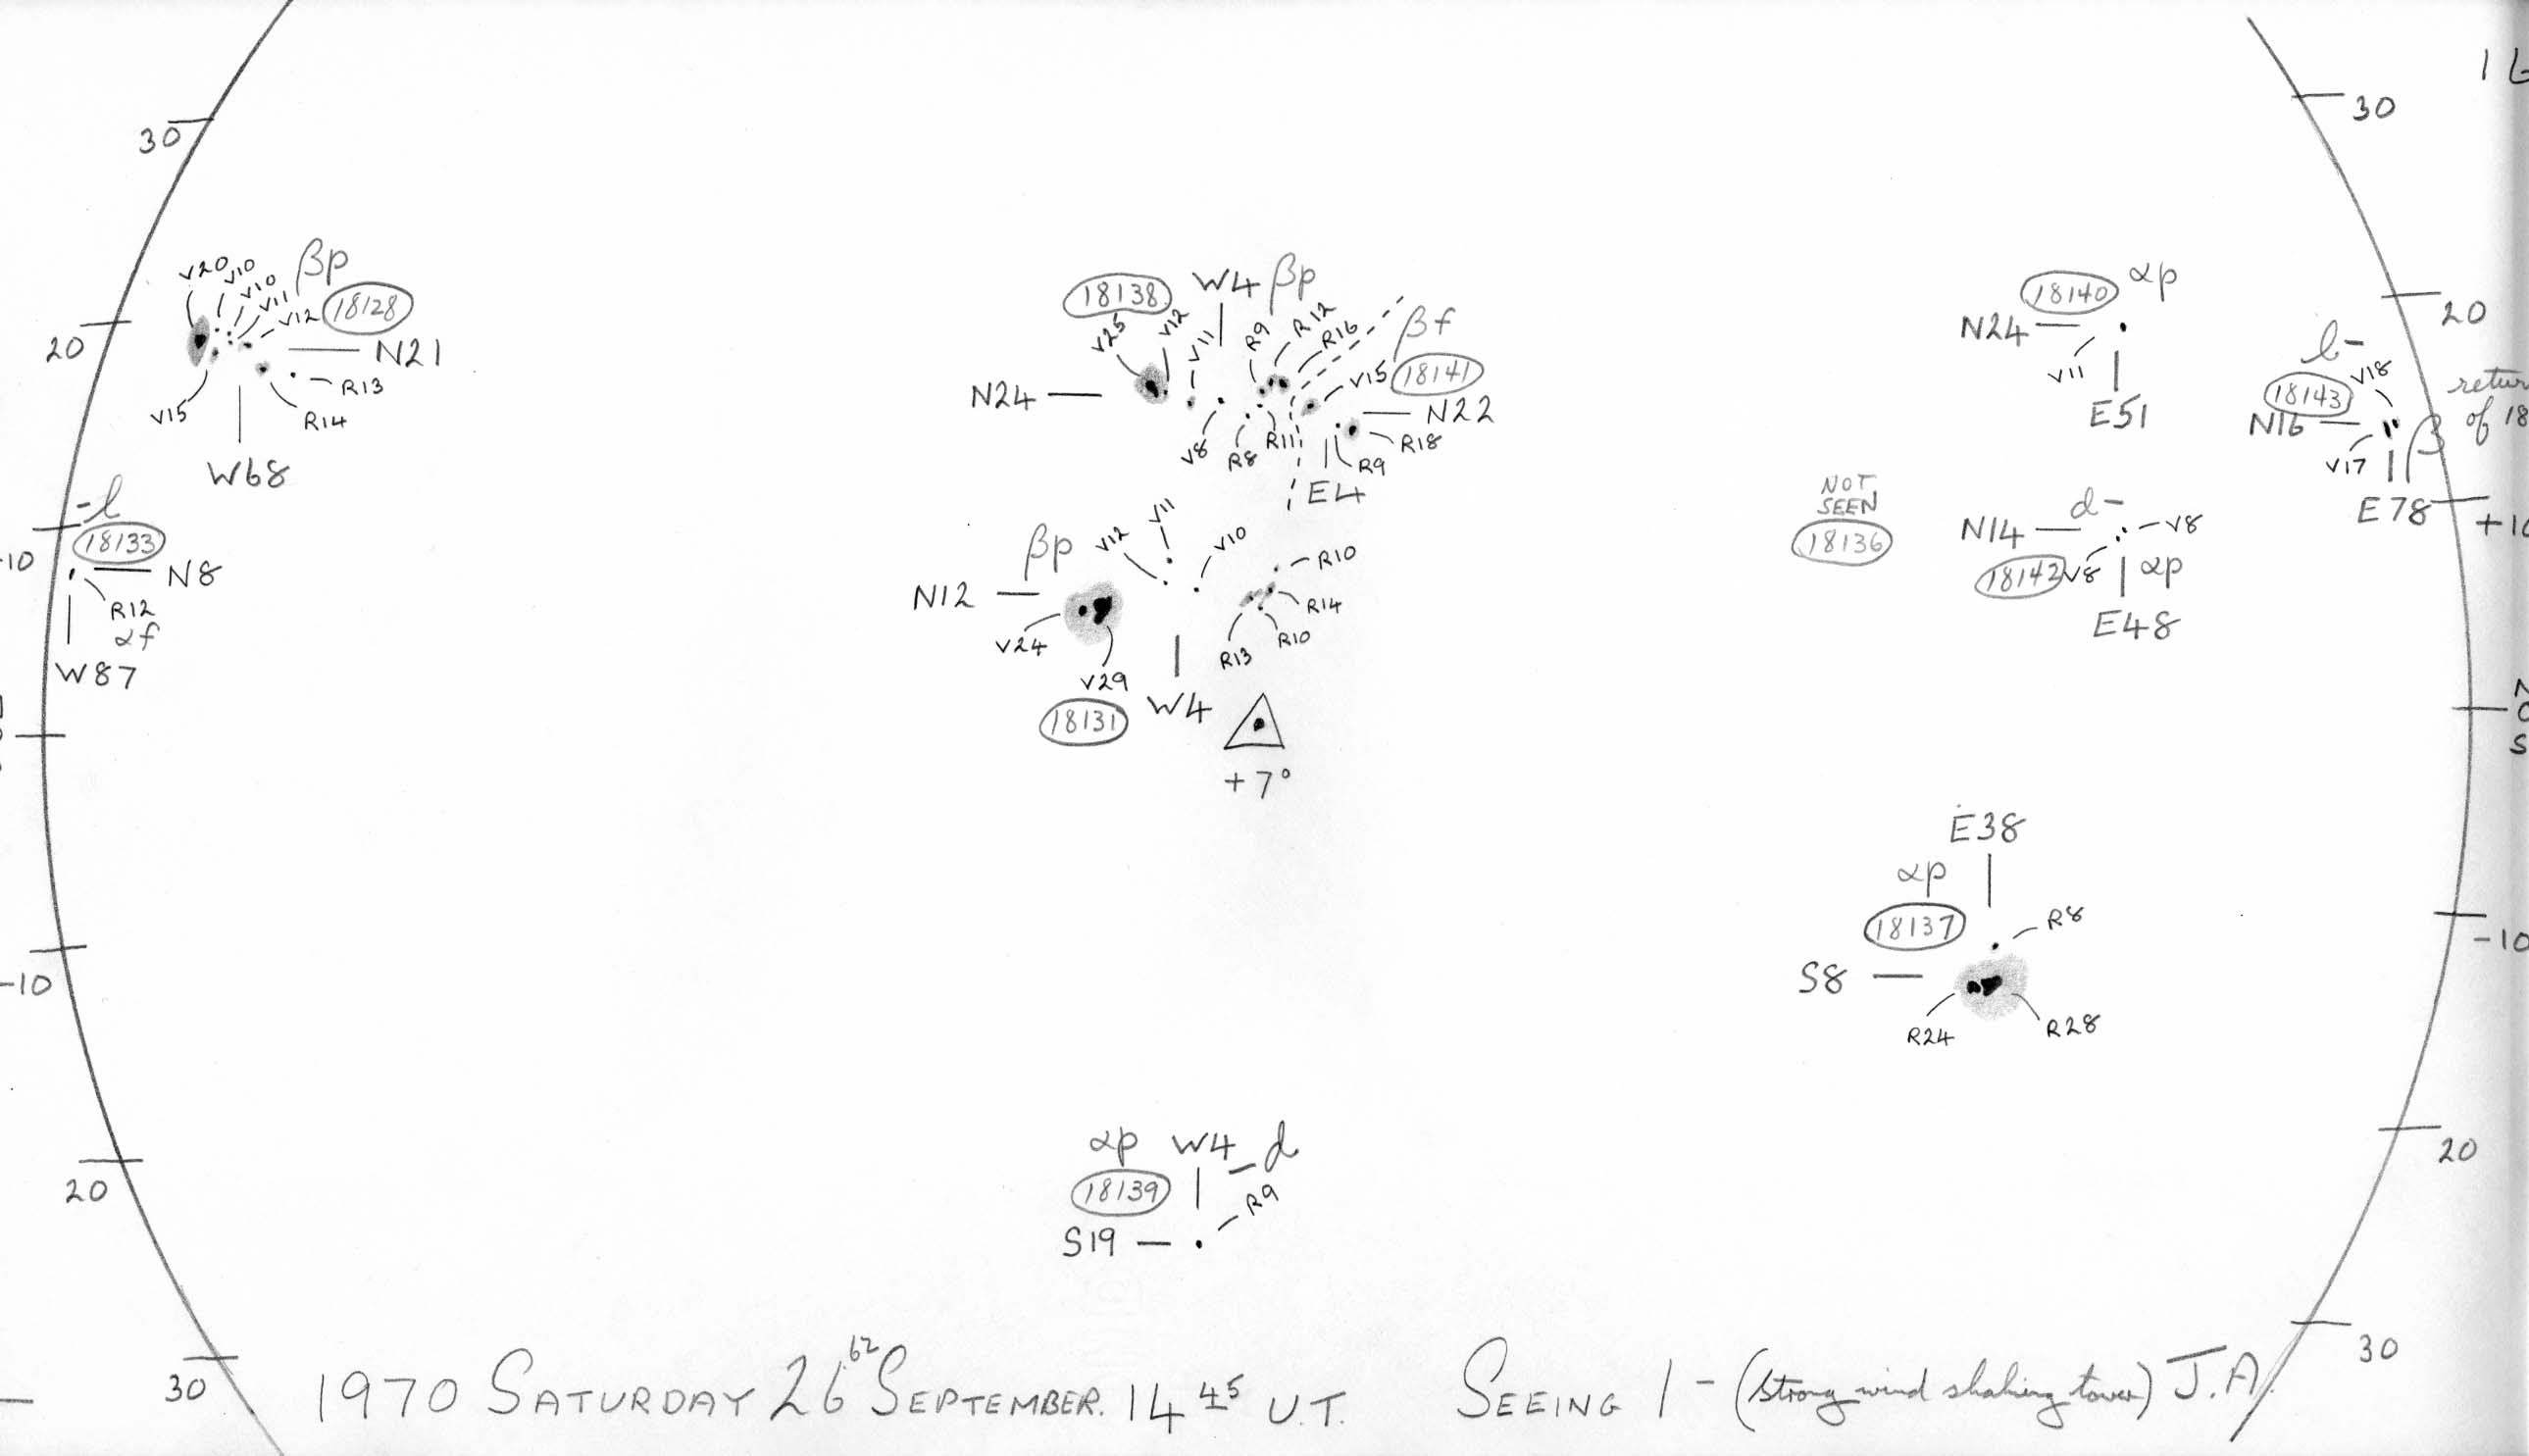 30
20
V20
V10
V10
V11
V12
βp
18128
N21
R13
R14
V15
W68
-l
18133
10
N8
R12
αf
W87
-10
20
30
18138
W4
βp
V25
V12
V11
R9
R12
R16
βf
V15
18141
N24
N22
V8
R8
R11
R9
R18
E4
βp
V12
V11
V10
R10
N12
R14
V24
R13
R10
V29
18131
W4
+7°
αp
W4
-d
18139
R9
S19
30
18140
αp
N24
V11
E51
20
l-
V18
18143
N16
V17
β
E78
of 18
NOT
SEEN
18136
d-
N14
V8
18142
V8
αp
E48
+10
0
S
E38
αp
18137
R8
S8
R24
R28
-10
20
30
1970 SATURDAY 26 62 SEPTEMBER. 14 45 U.T. SEEING 1- (strong wind shaking tower) J.A.